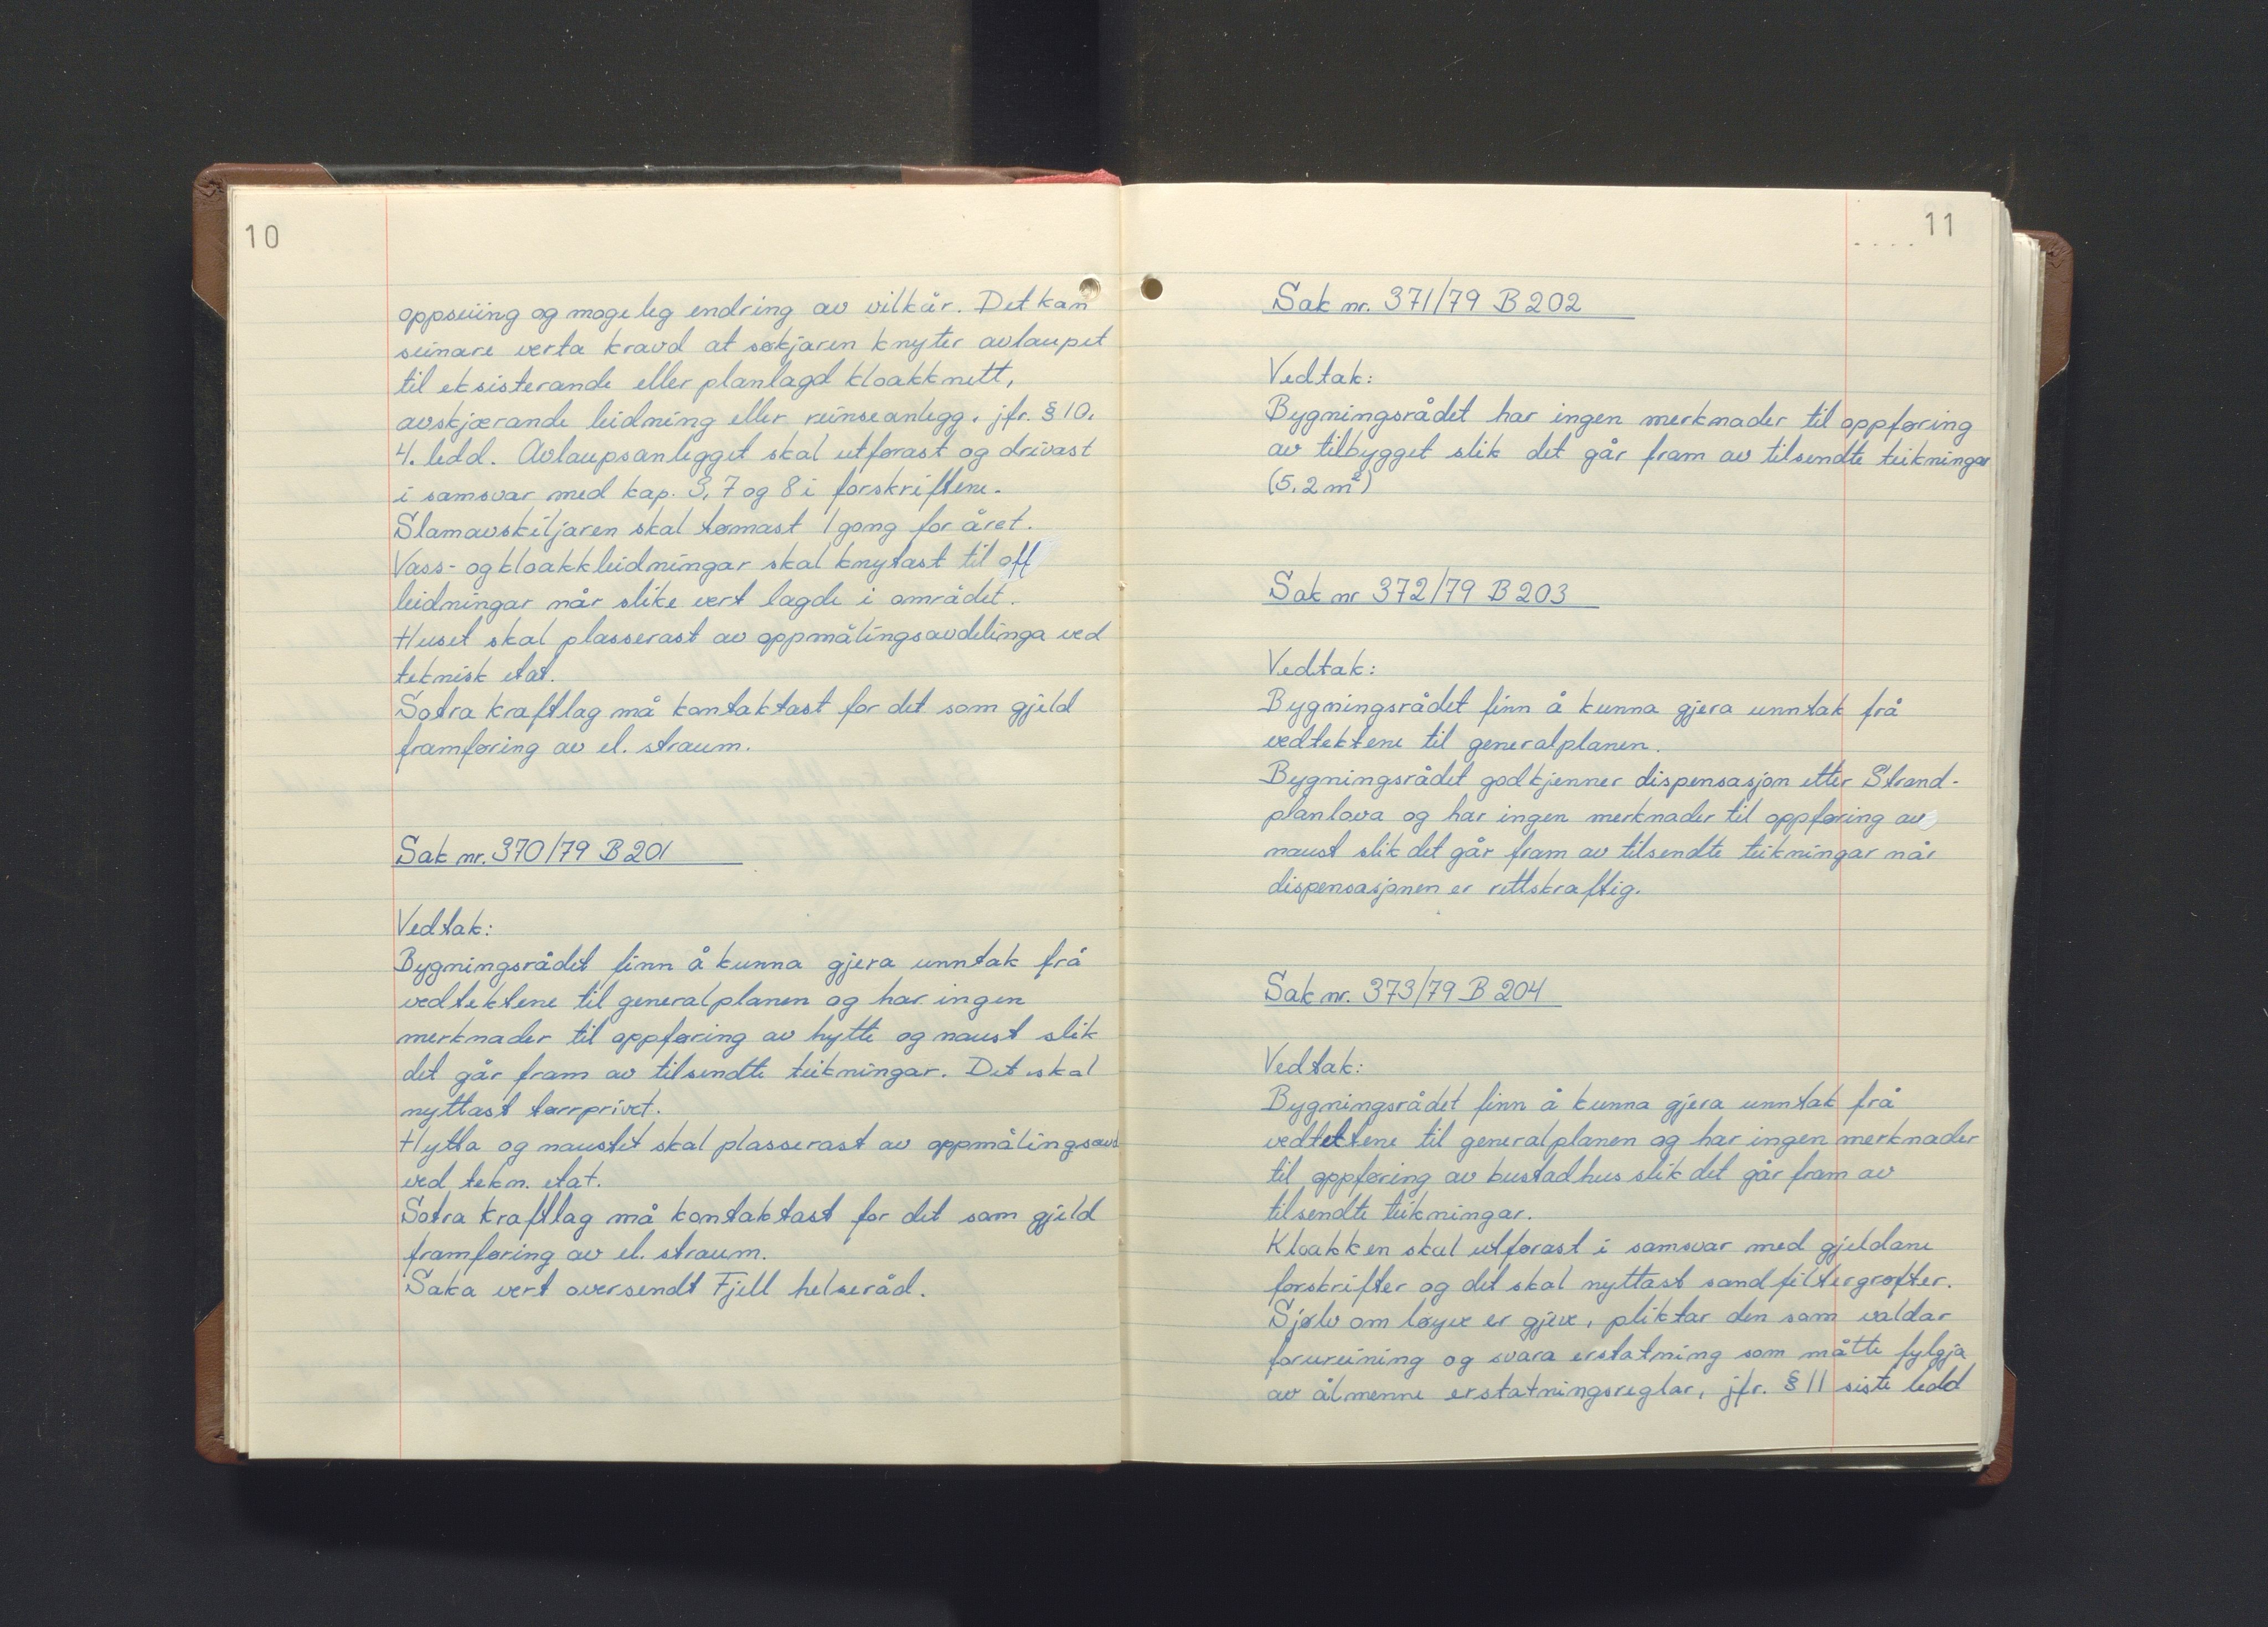 10
oppseiing og mogeleg endring av vilkår. Det kan
seinare verta kravd at søkjaren knyter avlaupet
til eksisterande eller planlagd kloakknett,
avskjærande leidning eller reinseanlegg, jfr. § 10.
4. ledd. Avlaupsanlegget skal utførast og drivast
i samsvar med kap. 3, 7 og 8 i forskriftene.
Slamavskiljaren skal tømmast 1 gong for året.
Vass- og kloakkleidningar skal knytast til off
leidningar når slike vert lagde i området.
Huset skal plasserast av oppmålingsavdelinga ved
teknisk etat.
Sotra kraftlag må kontaktast for det som gjeld
framføring av el. straum.
Sak nr. 370/79 B 201
Vedtak:
Bygningsrådet finn å kunna gjera unntak frå
vedtektene til generalplanen og har ingen
merknader til oppføring av hytte og naust slik
det går fram av tilsendte teikningar. Det skal
nyttast tørrprivet.
Hytta og naustet skal plasserast av oppmålingsavd
ved tekn. etat.
Sotra kraftlag må kontaktast for det som gjeld
framføring av el. straum.
Saka vert oversendt Fjell helseråd.
11
Sak nr. 371/79 B 202
Vedtak:
Bygningsrådet har ingen merknader til oppføring
av tilbygget slik det går fram av tilsendte teikningar
(5,2 m²)
Sak nr 372/79 B 203
Vedtak:
Bygningsrådet finn å kunna gjera unntak frå
vedtektene til generalplanen.
Bygningsrådet godkjenner dispensasjon etter Strand-
planlova og har ingen merknader til oppføring av
naust slik det går fram av tilsendte teikningar når
dispensasjonen er rettskraftig.
Sak nr. 373/79 B 204
Vedtak:
Bygningsrådet finn å kunna gjera unntak frå
vedtektene til generalplanen og har ingen merknader
til oppføring av bustadhus slik det går fram av
tilsendte teikningar.
Kloakken skal utførast i samsvar med gjeldane
forskrifter og det skal nyttast sandfiltergrøfter.
Sjølv om løyve er gjeve, pliktar den som valdar
forureining og svara erstatning som måtte fylgja
av ålmenne erstatningsreglar, jfr. § 11 siste ledd